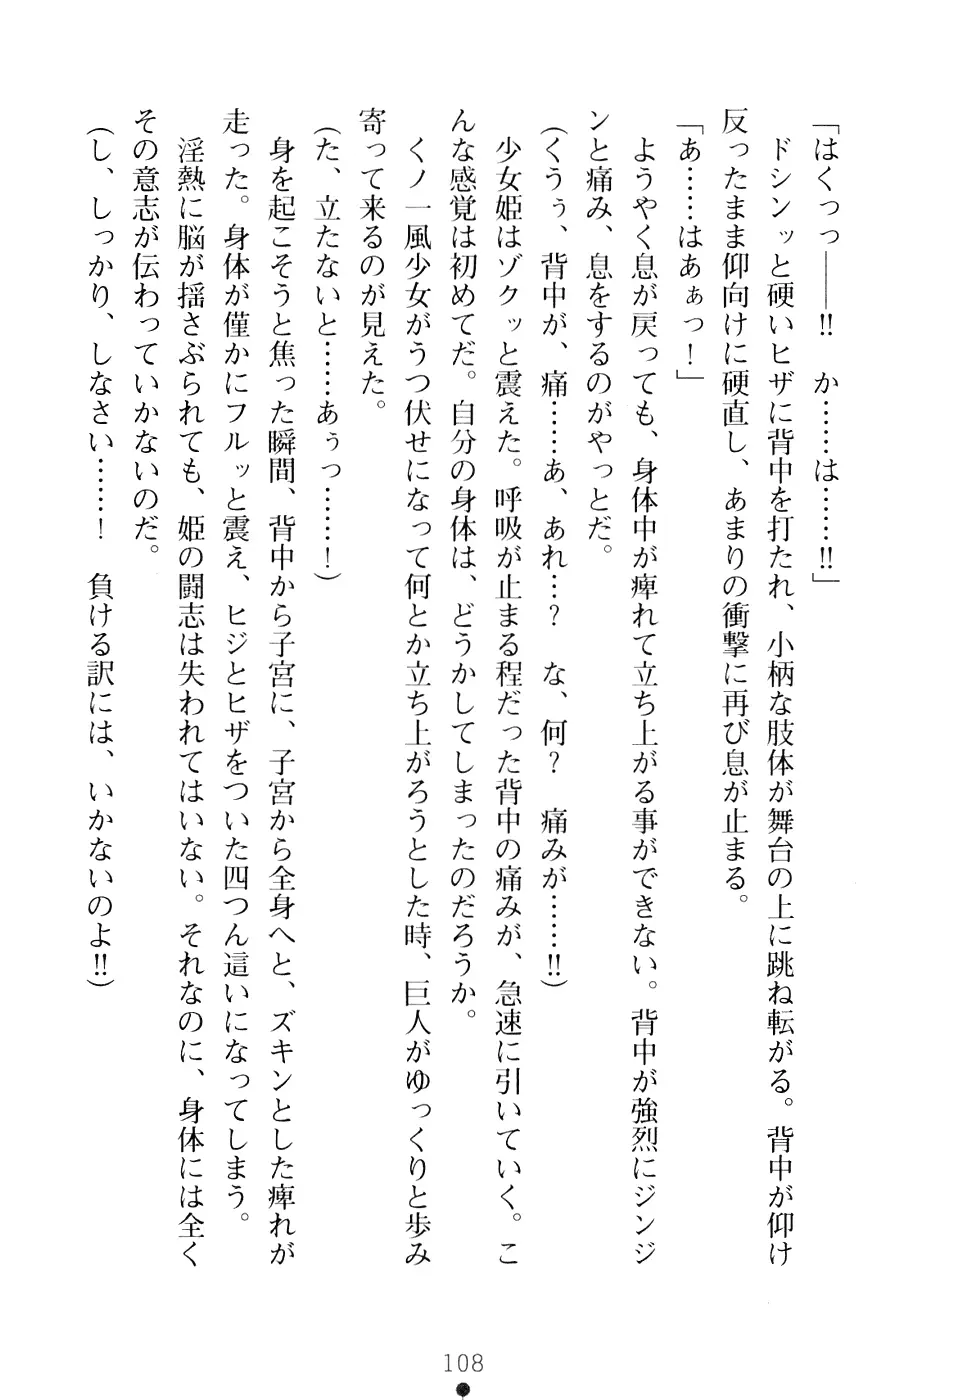 「はくっっ――!!　か……は……!!」
　ドシンッと硬いヒザに背中を打たれ、小柄な肢体が舞台の上に跳ね転がる。背中が仰け
反ったまま仰向けに硬直し、あまりの衝撃に再び息が止まる。
「あ……はあぁっ！」
　ようやく息が戻っても、身体中が痺れて立ち上がる事ができない。背中が強烈にジンジ
ンと痛み、息をするのがやっとだ。
（くうぅ、背中が、痛……あ、あれ…？　な、何？　痛みが……!!）
　少女姫はゾクッと震えた。呼吸が止まる程だった背中の痛みが、急速に引いていく。こ
んな感覚は初めてだ。自分の身体は、どうかしてしまったのだろうか。
　くノ一風少女がうつ伏せになって何とか立ち上がろうとした時、巨人がゆっくりと歩み
寄って来るのが見えた。
（た、立たないと……あぅっ……！）
　身を起こそうと焦った瞬間、背中から子宮に、子宮から全身へと、ズキンとした痺れが
走った。身体が僅かにフルッと震え、ヒジとヒザをついた四つん這いになってしまう。
　淫熱に脳が揺さぶられても、姫の闘志は失われてはいない。それなのに、身体には全く
その意志が伝わっていかないのだ。
（し、しっかり、しなさい……！　負ける訳には、いかないのよ!!）
108